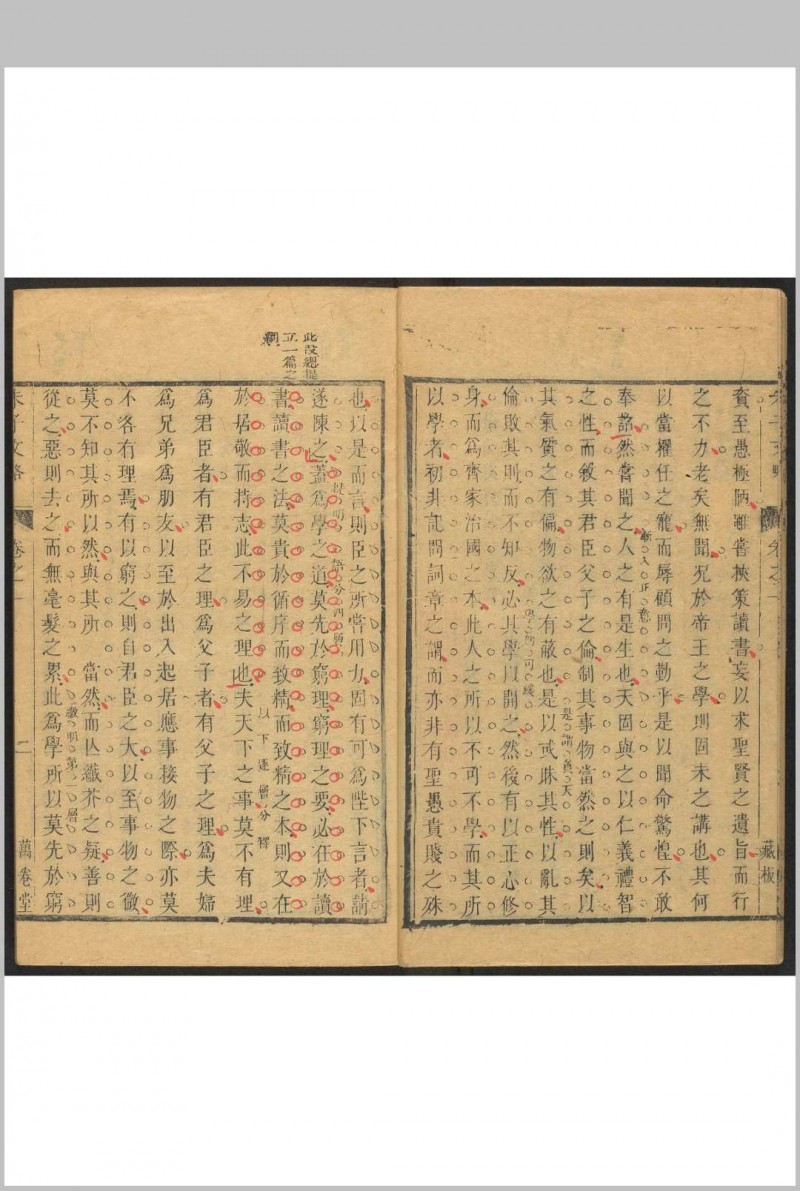 資至愚極陋雖嘗挾策讀書妄以求聖賢之遺旨而行
之不力老矣無聞况於帝王之學則固未之講也其何
以當擢任之寵而辱顧問之勤乎是以聞命驚惶不敢
奉詔然嘗聞之人之有是生也天固與之以仁義禮智
之性而敘其君臣父子之倫制其事物當然之則矣以
其氣質之有偏物欲之有蔽也是以或昧其性以亂其
倫敗其則而不知反必其學以開之然後有以正心修
身而為齊家治國之本此人之所以不可不學而其所
以學者初非記問詞章之謂而亦非有聖愚貴賤之殊
藏板
此段總提
立一篇之
綱
也以是而言則臣之所嘗用力固有可為陛下言者請
遂陳之蓋為學之道莫先於窮理窮理之要必在於讀
提明 分四層
書讀書之法莫貴於循序而致精而致精之本則又在
於居敬而持志此不易之理也夫天下之事莫不有理
以下逐層分
為君臣者有君臣之理為父子者有父子之理為夫婦
為兄弟為朋友以至於出入起居應事接物之際亦莫
不各有理焉有以窮之則自君臣之大以至事物之微
莫不知其所以然與其所當然而亾纖芥之疑善則
從之惡則去之而無毫髮之累此為學所以莫先於窮
朱子文略
卷之一
二
萬卷堂